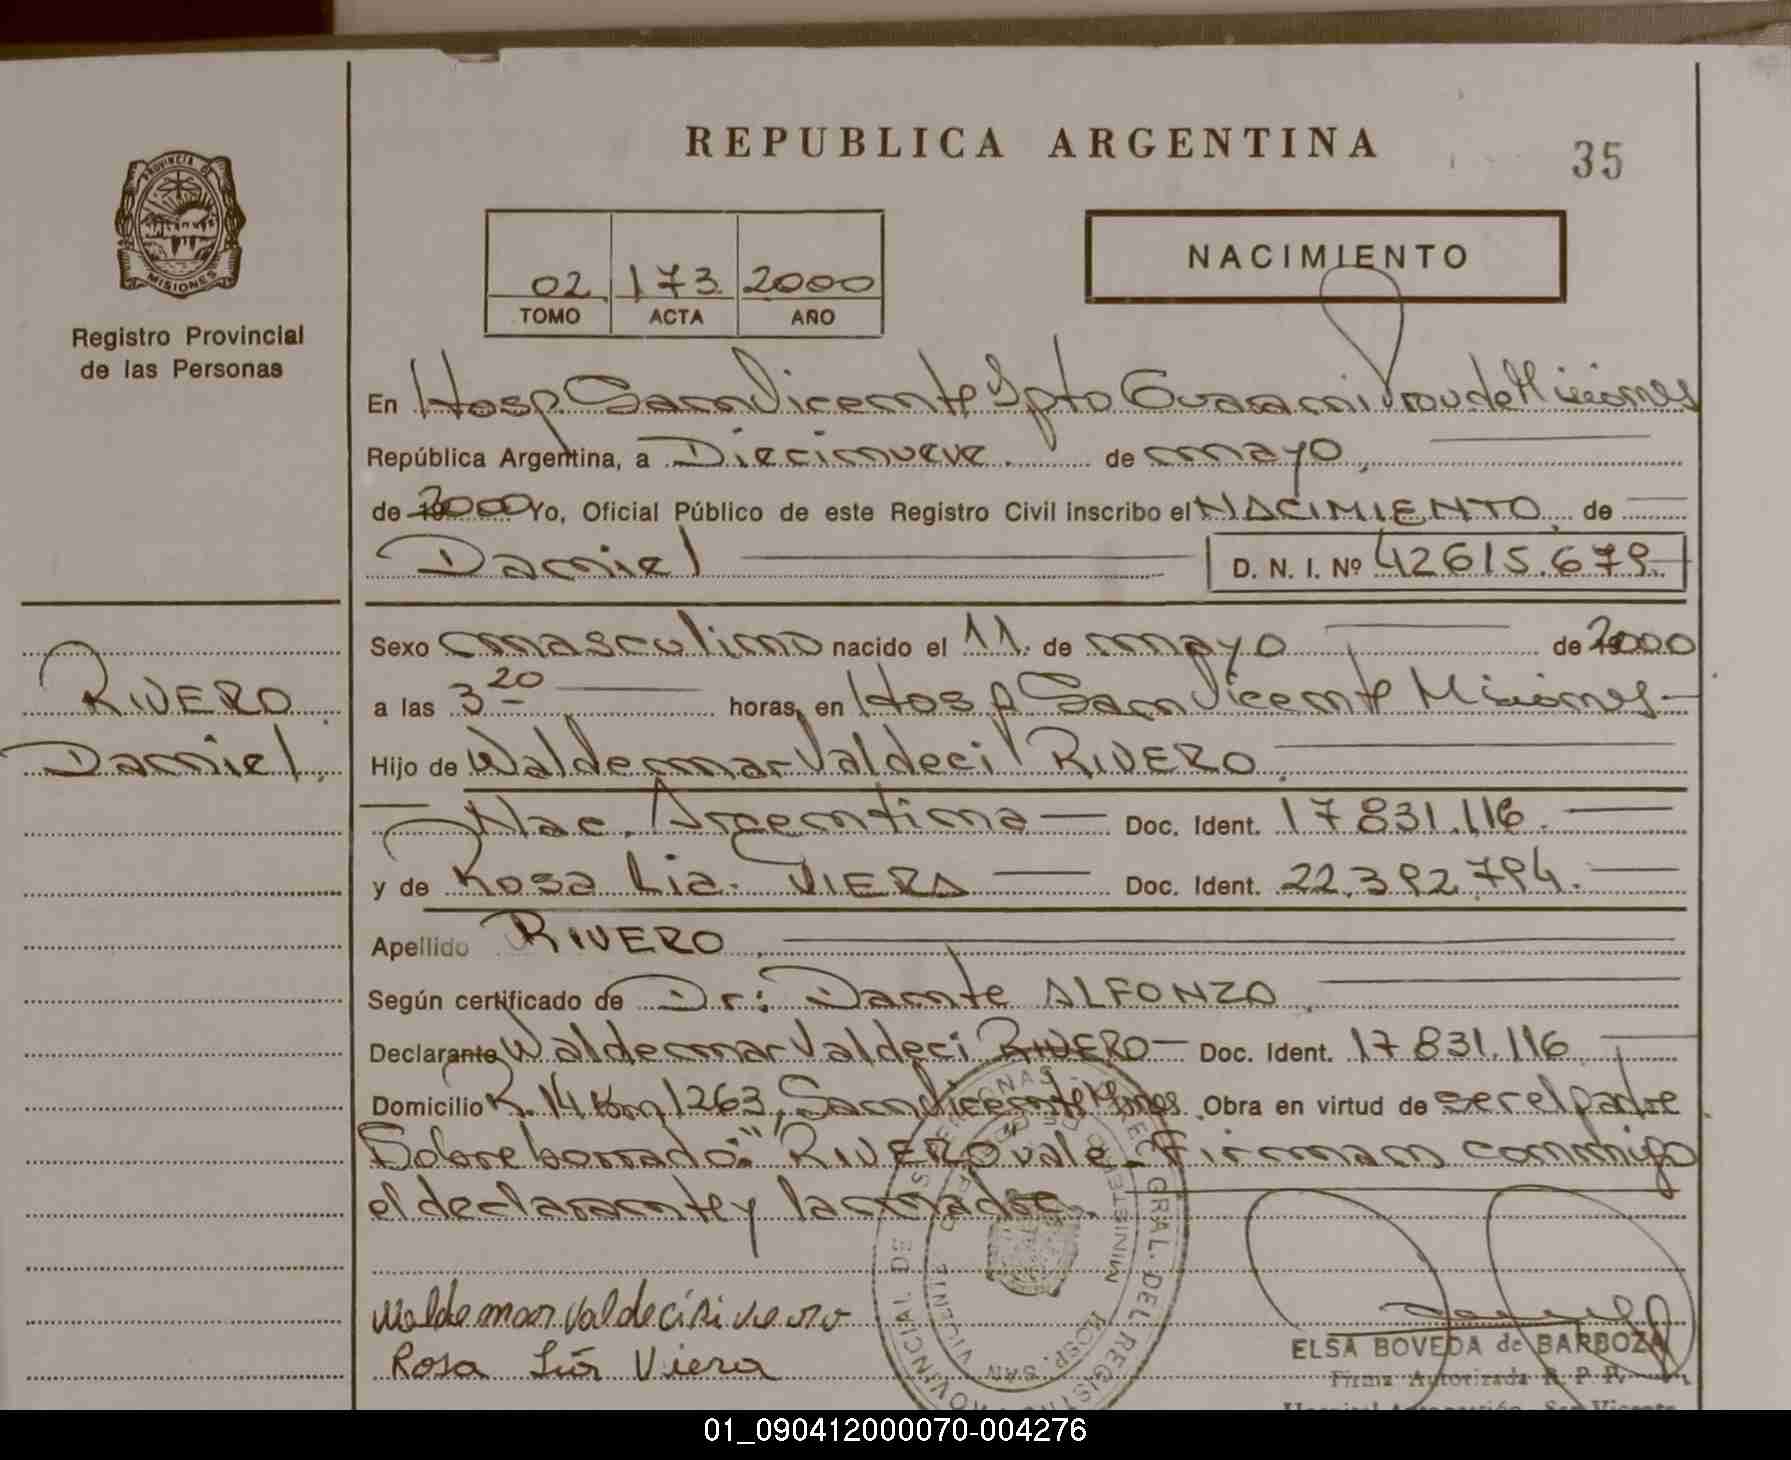 REPUBLICA ARGENTINA
35
PROVINCIA DE
MISIONES
Registro Provincial
de las Personas
02 173 2000
TOMO ACTA AÑO
NACIMIENTO
En Hosp. San Vicente Dpto Guarani Prov de Misiones
República Argentina, a Diecinueve de mayo
de 2000 Yo, Oficial Público de este Registro Civil inscribo el NACIMIENTO de
Daniel D. N. I. Nº 42615.679
Sexo masculino nacido el 11 de mayo de 2000
a las 3 20 horas, en Hosp San Vicente Misiones
RIVERO
Daniel
Hijo de Waldemar Valdeci RIVERO
Nac. Argentina Doc. Ident. 17 831.116
y de Rosa Lia VIERA Doc. Ident. 22.392.794
Apellido RIVERO
Según certificado de Dr: Dante ALFONZO
Declarante Waldemar Valdeci RIVERO Doc. Ident. 17 831.116
Domicilio R. 14 Km 1263, San Vicente Mnes Obra en virtud de ser el padre
Sobre borrado: "RIVERO vale. Firman conmigo
el declarante y la madre.
Waldemar Valdeci Rivero
Rosa Lia Viera
ELSA BOVEDA de BARBOZA
Firma Autorizada R. P. P.
01_090412000070-004276